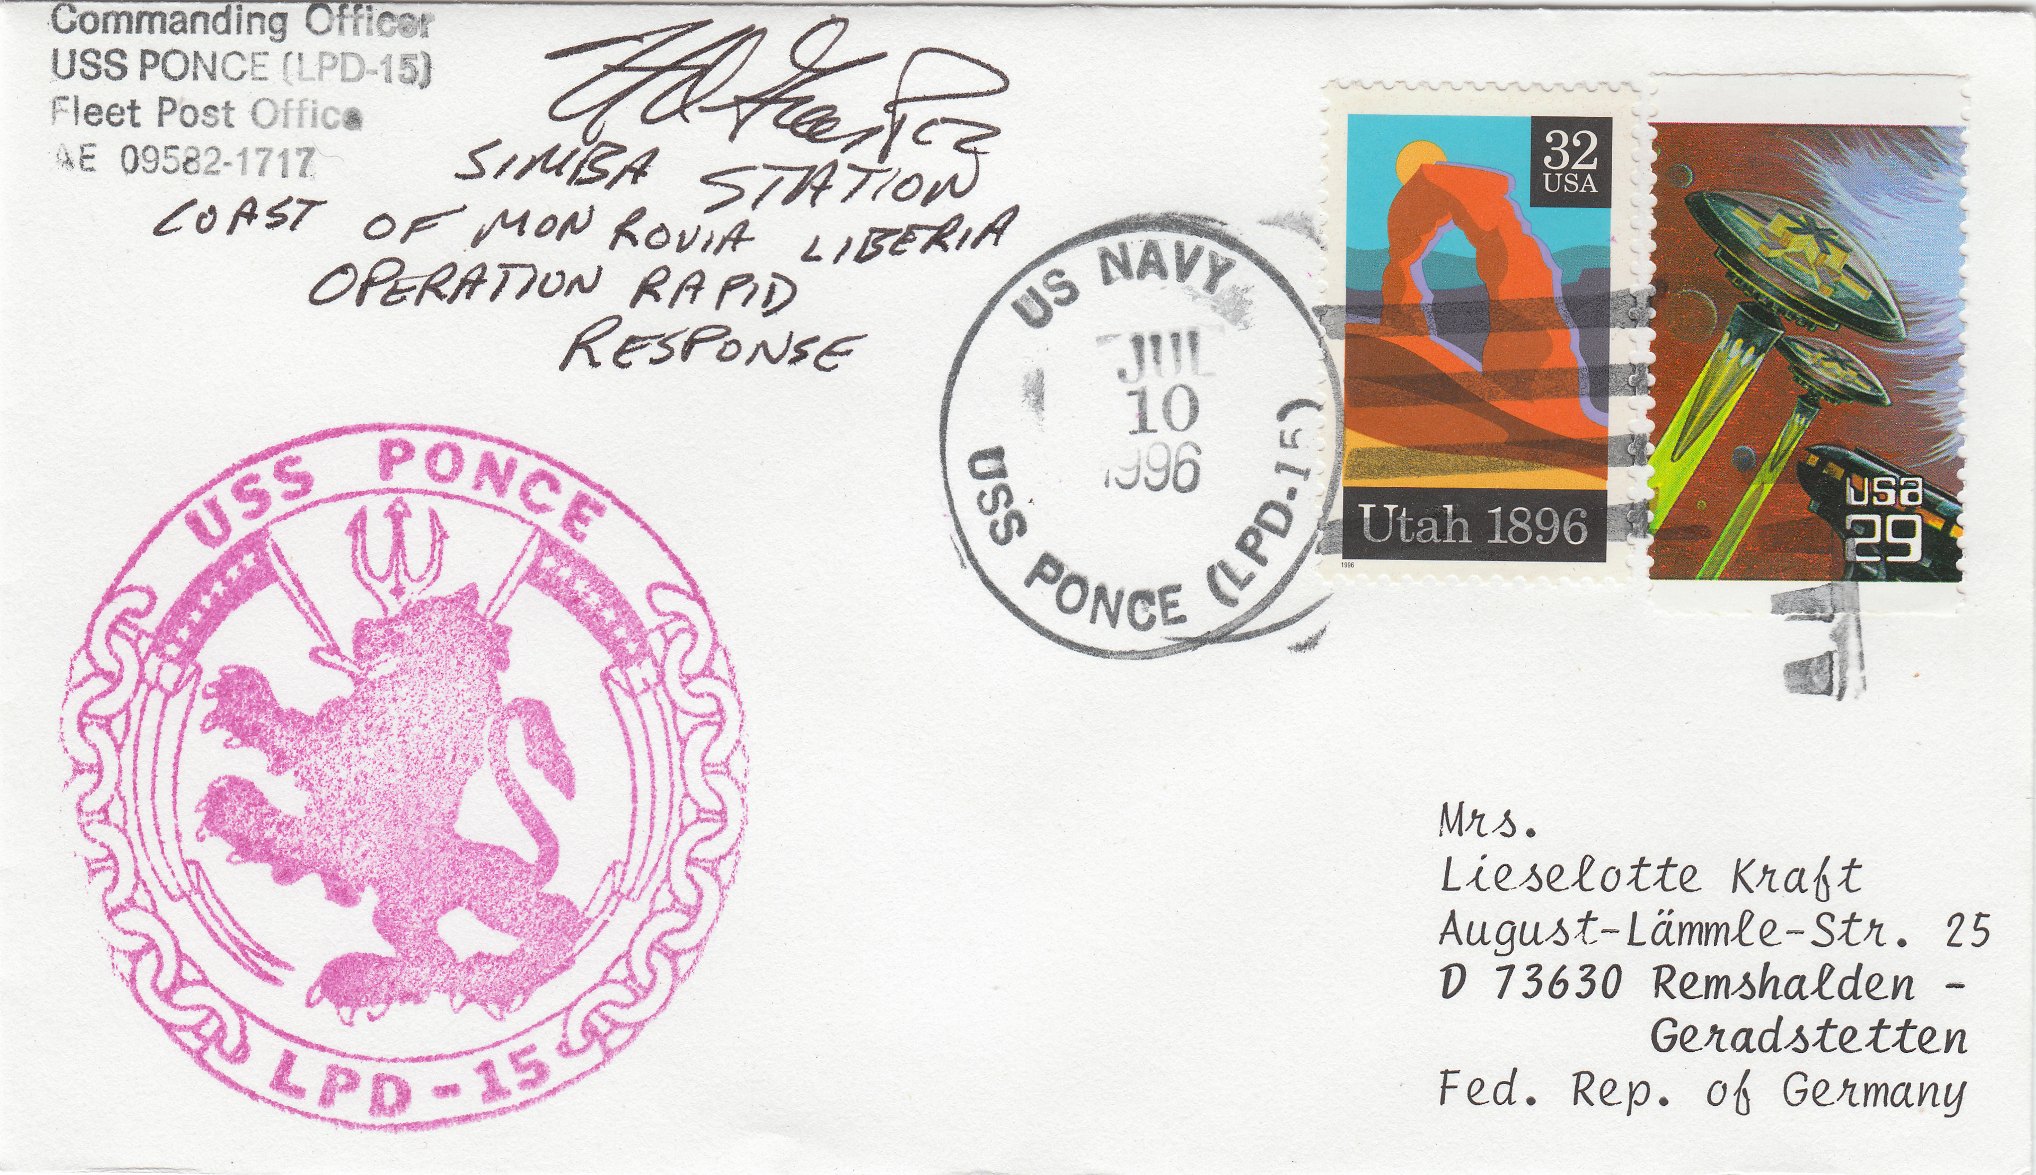 Commanding Officer
USS PONCE (LPD-15)
Fleet Post Office
AE 09582-1717
SIMBA STATION
COAST OF MONROVIA LIBERIA
OPERATION RAPID
RESPONSE
US NAVY
JUL
10
1996
USS PONCE (LPD-15)
32
USA
Utah 1896
1996
USA
29
USS PONCE
LPD-15
Mrs.
Lieselotte Kraft
August-Lämmle-Str. 25
D 73630 Remshalden -
Geradstetten
Fed. Rep. of Germany